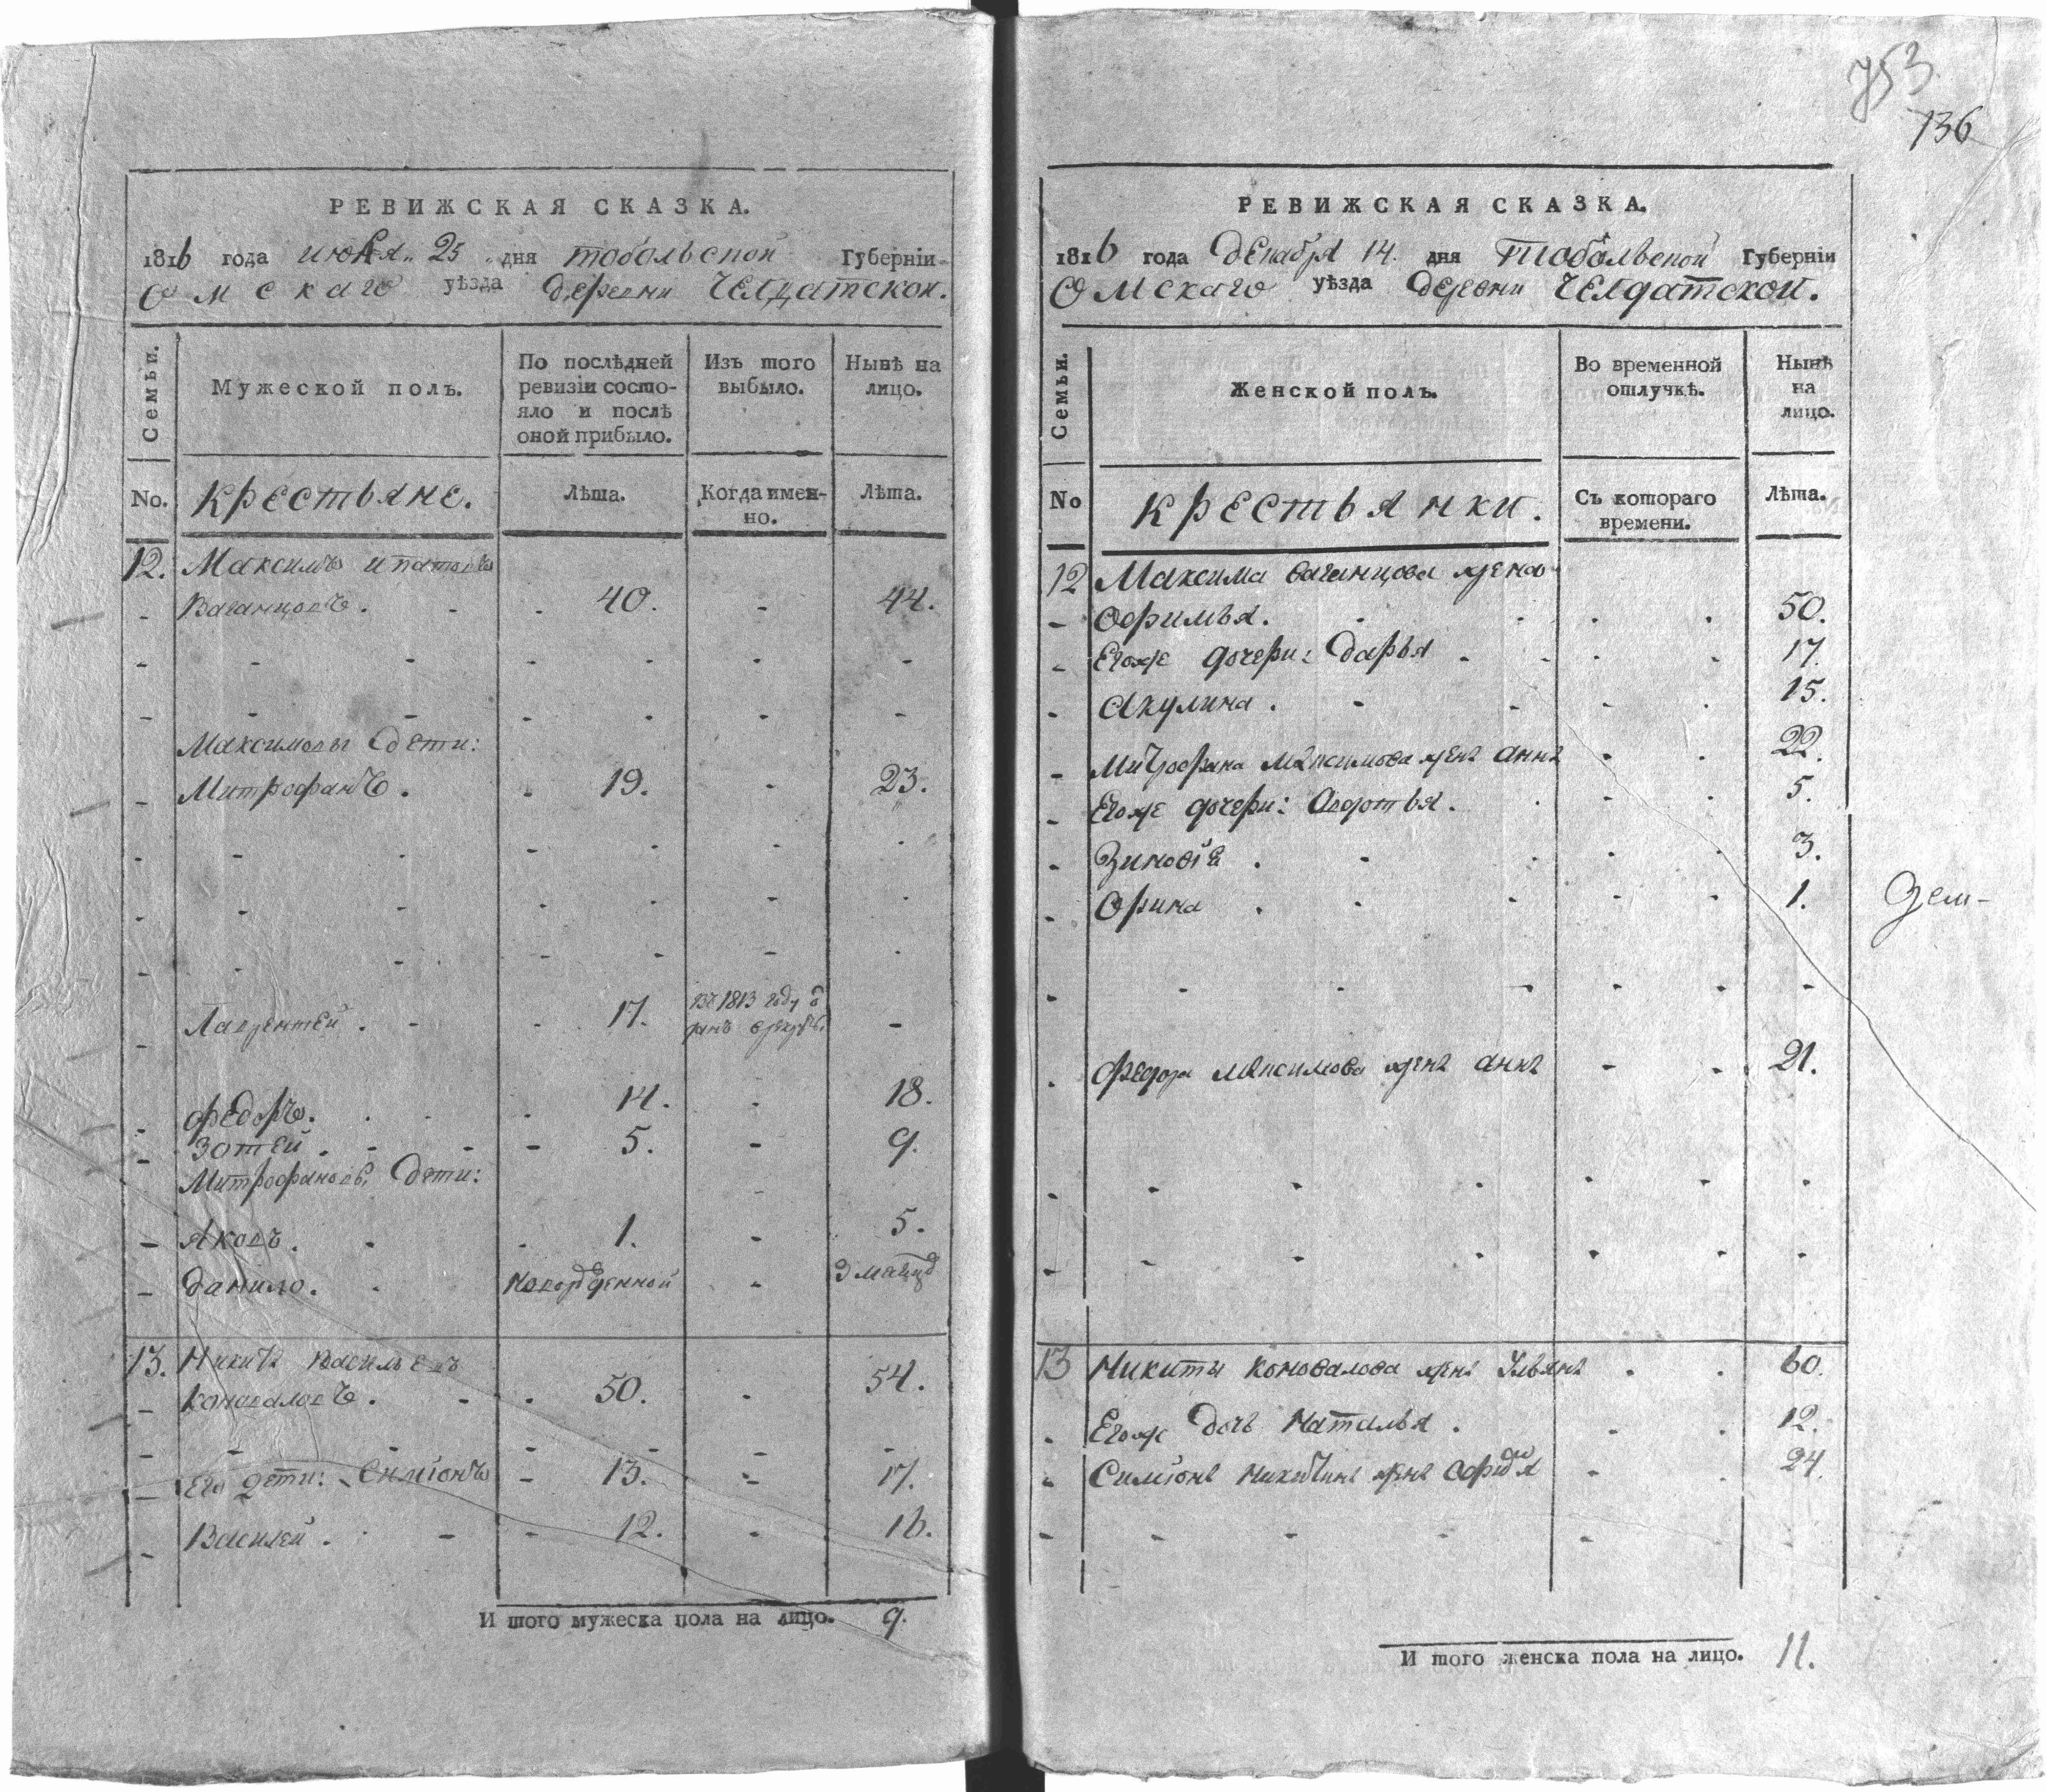 РЕВИЖСКАЯ СКАЗКА.
1816 года июля 25 дня тобольской Губерніи
Омскаго уѣзда деревни Челдатской.
Семьи.
Мужеской полъ.
По послѣдней ревизіи состояло и послѣ оной прибыло.
Изъ того выбыло.
Нынѣ на лицо.
No.
крестьяне.
Лѣта.
Когда именно.
Лѣта.
12. Максимъ ипатовъ
Ваганцовъ. 40. 44.
Максимовы дети:
Митрофанъ. 19. 23.
Лаврентей. 17. въ 1813 году о
Федоръ. 14. 18.
Зотей. 5. 9.
Митрофановы дети:
Яковъ. 1. 5.
данило. новорожденной 3 мѣсяц
13. Никита Васильевъ
коноваловъ. 50. 54.
Его дети: Симіонъ 13. 17.
Василей. 12. 16.
И того мужеска пола на лицо. 9.
753
136
РЕВИЖСКАЯ СКАЗКА.
1816 года декабря 14. дня Тобольской Губерніи
Омскаго уѣзда деревни Челдатской.
Семьи.
Женской полъ.
Во временной отлучкѣ.
Нынѣ на лицо.
No
крестьянки.
Съ котораго времени.
Лѣта.
12 Максима ваганцова жена
Офимья. 50.
Егоже дочери: Дарья 17.
Акулина. 15.
Митрофана максимова жена анна 22.
Егоже дочери: Авдотья. 5.
Зиновіе 3.
Орина 1.
Зем-
Федора максимова жена анна 21.
13 Никиты коновалова жена Ульяна 60.
Егоже дочь Наталья. 12.
Симіона никитина жена 24.
И того женска пола на лицо. 11.